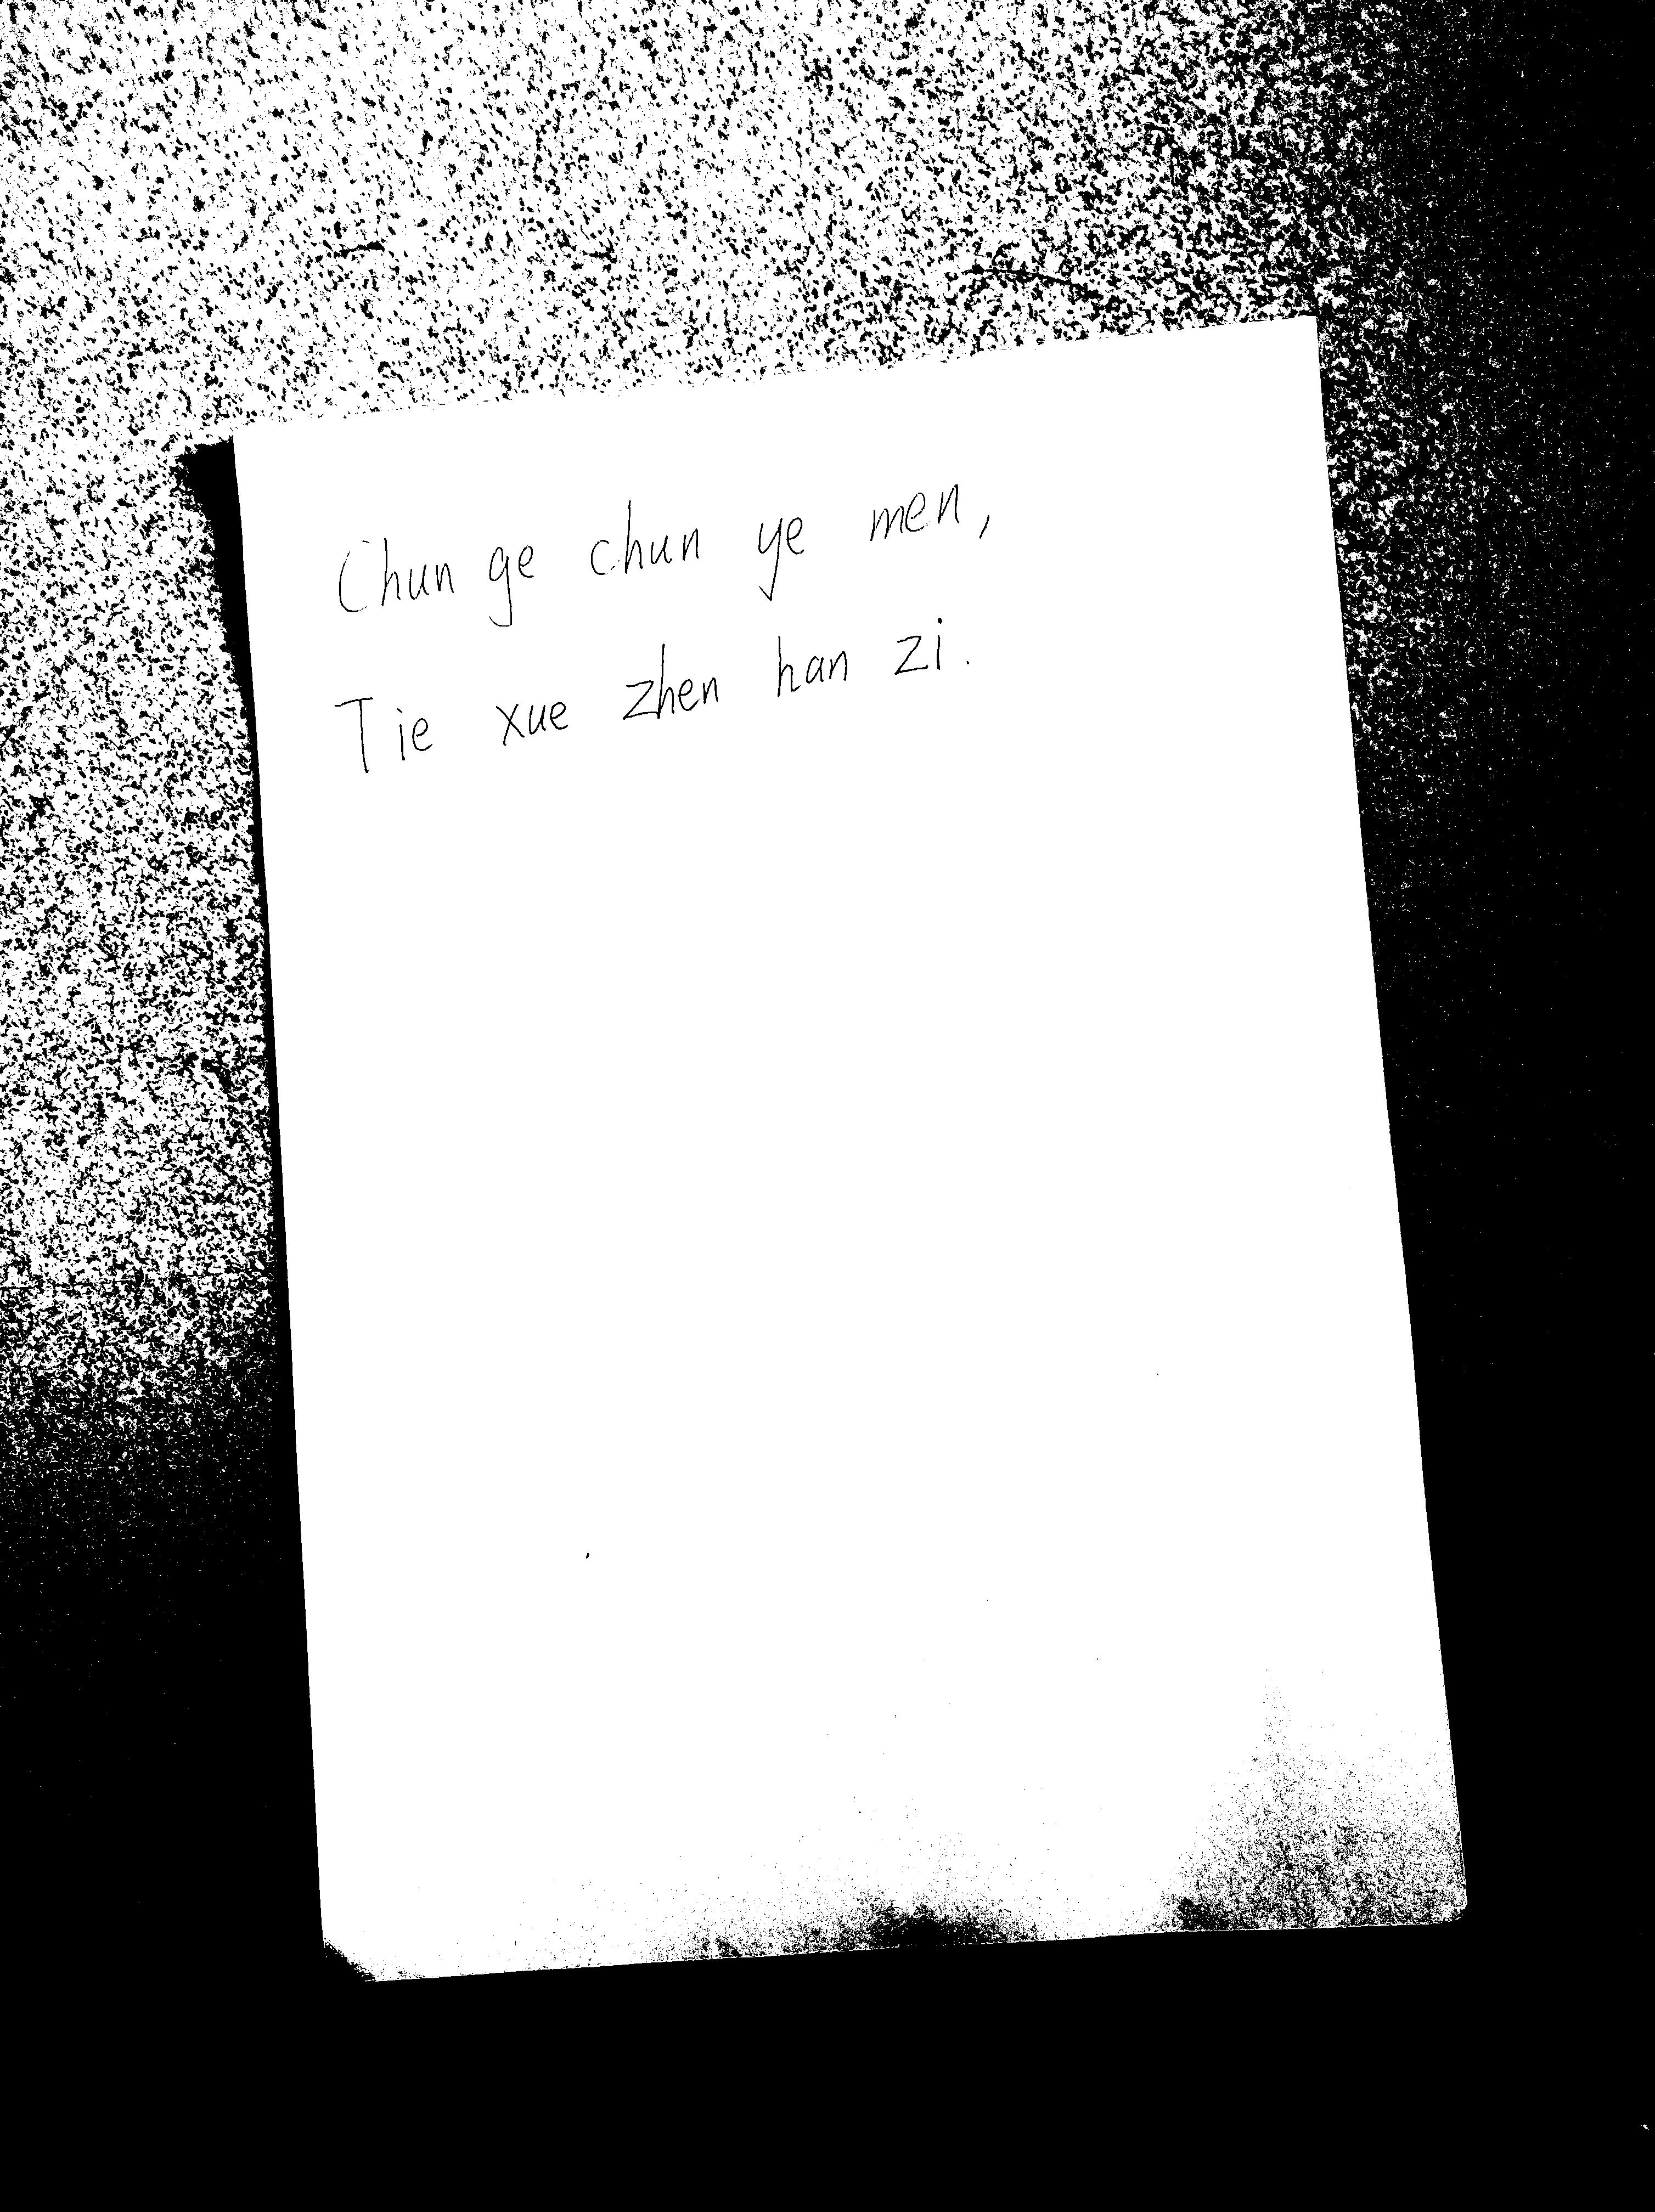 Chun ge chun ye men,
Tie xue zhen han zi.